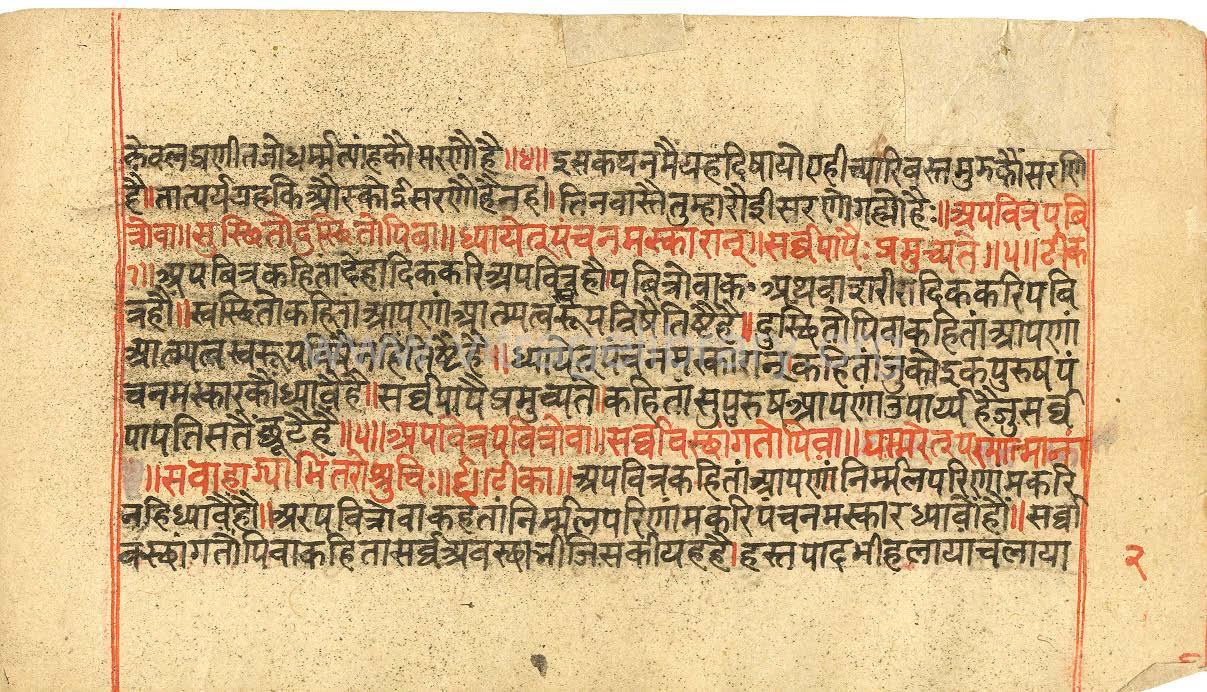 केवलप्रणीतजोधर्म्मत्यांहकौसरणौहै॥४॥इसकथनमैंयहदिषायोएहीच्यारिवस्तमुझकौंसरणि
है॥तात्पर्ययहकिऔरकोईसरणौहैनही।तिनवास्तैतुम्हारौहीसरणोगह्योहैः॥अपवित्रपवि
त्रोवा॥सुस्थितोदुस्थितोपिवा॥ध्यायेत्पंचनमस्कारान्॥सर्व्वपापैःप्रमुच्यते॥५॥टीक
ा॥अपवित्रकहितांदेहादिककरिअपवित्रहौ।पवित्रोवाकःअथवाशरीरादिककरिपवि
त्रहौ॥स्वस्थितोकहितांआपणांआत्मतत्वरूपविषैतिष्टैहै॥दुस्थितोपिवाकहितांआपणां
आत्मतत्वस्वरूपविषैनहितिष्टैहै॥ध्यायेत्पंचनमस्कारान्कहितांजुकोइकपुरुषपं
चनमस्कारकौध्यावैहै॥सर्व्वपापैप्रमुच्यते।कहितांसुपुरुषआपणांउपार्य्यहैजुसर्व्व
पापतिसतैंछूटैहै॥५॥अपवित्रपवित्रोवा॥सर्व्वावस्थांगतोपिवा॥यस्मरेत्परमात्मानां
॥सवाह्याभ्यांभिंतरोश्रुचिः॥६॥टीका॥अपवित्रकहितांआपणांनिर्म्मलपरिणामकरि
नहिध्यावैहौ॥अरपवित्रोवाकहतांनिर्म्मलपरिणांमकरिपंचनमस्कारध्यावौहौ॥सर्व्वा
वस्थांगतौपिवाकहितासर्व्वअवस्थाभीजिसकीयहहै।हस्तपादभीहलायाचलाया
२
www.vidyalibrary.org